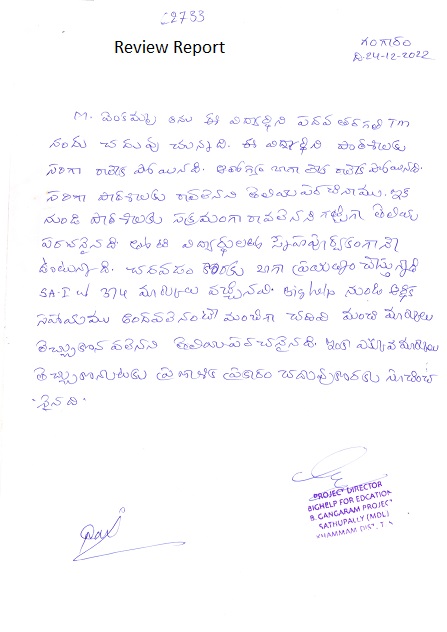 22733
Review Report
గంగారం
ది-24-12-2022
M. వెంకమ్మ అను ఈ విద్యార్థిని పదవ తరగతి Tm
నందు చదువు చున్నది. ఈ విద్యార్థిని పాఠశాలకు
సరిగా రాలేక పోయినది. ఆరోగ్యం బాగా లేక రాలేక పోయినది.
సరిగా పాఠశాలకు రావలెనని తెలియపరచినాము. ఇక
నుండి పాఠశాలకు సక్రమంగా రావలెనని గట్టిగా తెలియ
పరచనైనది. తోటి విద్యార్థులతో స్నేహపూర్వకంగానే
ఉంటున్నాది. చదవడం కొరకు బాగా ప్రయత్నం చేస్తున్నాది
SA-I లో 374 మార్కులు వచ్చినవి. Bighelp నుండి ఆర్థిక
సహాయము అందవలెనంటే మంచిగా చదివి మంచి మార్కులు
తెచ్చుకొన వలెనని తెలియపరచనైనది. ఇంకా ఎక్కువ మార్కులు
తెచ్చుకొనుటకు ప్రణాళిక ప్రకారం చదువుకొనుటకు సూచించ
నైనది.
PROJECT DIRECTOR
BIGHELP FOR EDCATION
B. GANGARAM PROJECT
SATHUPALLY (MDL)
KHAMMAM DIST. T.S